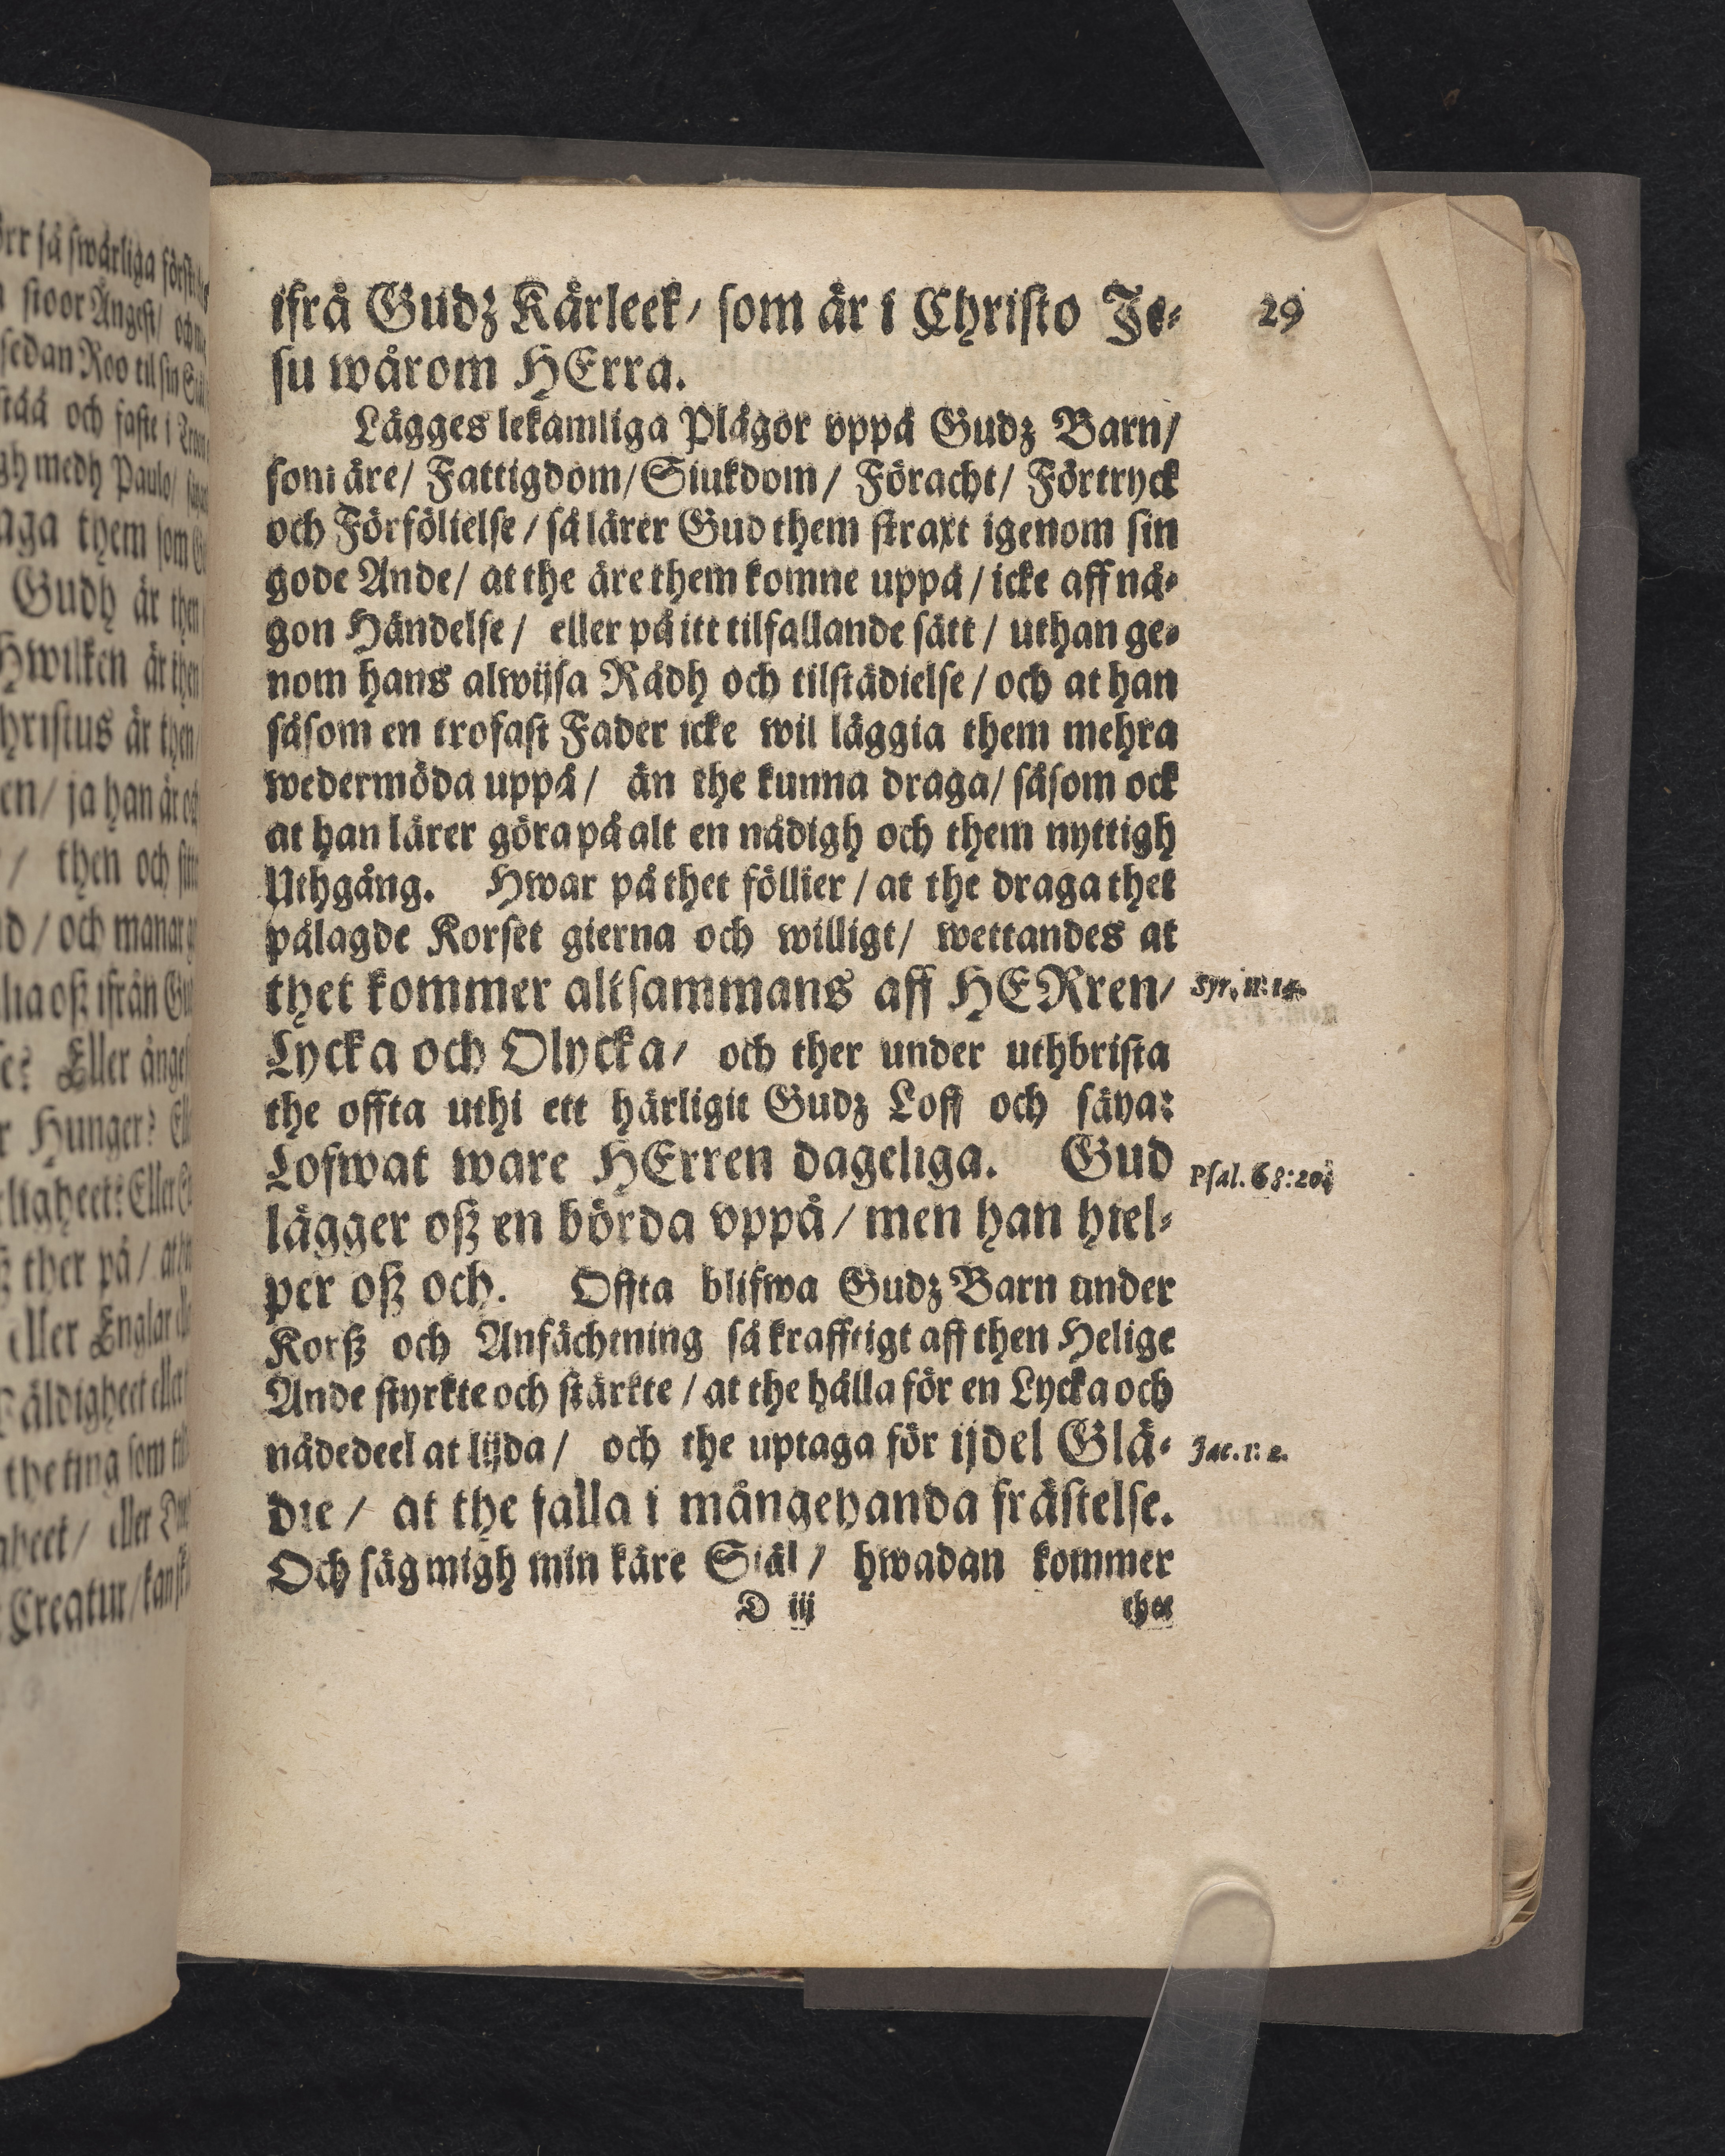 ifrå Gudz Kärleek/ som är i Christo Je-
29
su wårom HErra.
Lägges lekamliga Plågor vppå Gudz Barn/
som äre/ Fattigdom/ Siukdom/ Föracht/ Förtryck
och Förfölielse/ så lärer Gud them straxt igenom sin
gode Ande/ at the äre them komne uppå/ icke aff nå-
gon Händelse/ eller på itt tilfallande sätt/ uthan ge-
nom hans alwijsa Rådh och tilstädielse/ och at han
såsom en trofast Fader icke wil läggia them mehra
wedermöda uppå/ än the kunna draga/ såsom ock
at han lärer göra på alt en nådigh och them nyttigh
Uthgång. Hwar på thet föllier/ at the draga thet
pålagde Korset gierna och willigt/ wettandes at
thet kommer altsammans aff HERren/
Syr. 11: 14.
Lycka och Olycka/ och ther under uthbrista
the offta uthi ett härligit Gudz Loff och säya:
Lofwat ware HErren dageliga. Gud
Psal. 68:20.
lägger oß en börda vppå/ men han hiel-
per oß och. Offta blifwa Gudz Barn under
Korß och Anfächtning så krafftigt aff then Helige
Ande styrkte och stärkte/ at the hålla för en Lycka och
nådedeel at lijda/ och the uptaga för ijdel Glä-
Jac. 1: 2.
die/ at the falla i mångehanda frästelse.
Och säg migh min käre Siäl/ hwadan kommer
D iij
thet